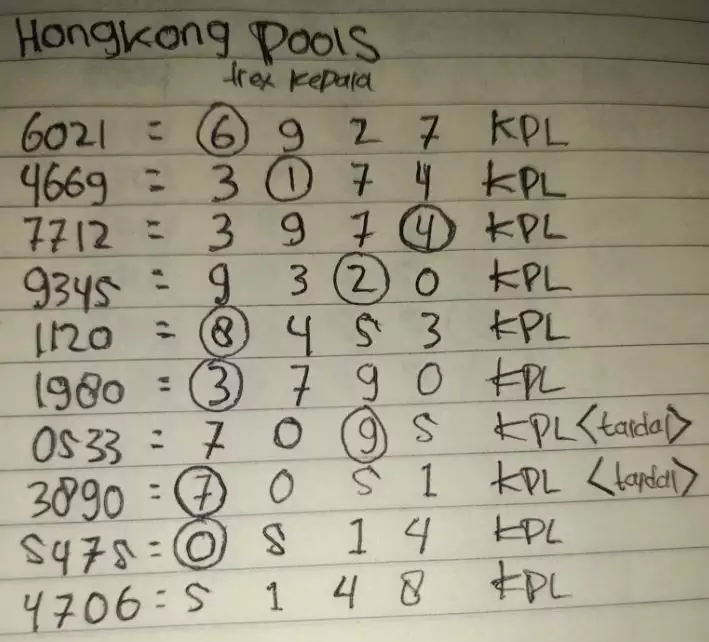 Hongkong Pools
trex kepala
6021 = 6 9 2 7 KPL
4669 = 3 1 7 4 KPL
7712 = 3 9 7 4 KPL
9345 = 9 3 2 0 KPL
1120 = 8 4 5 3 KPL
1980 = 3 7 9 0 KPL
0533 = 7 0 9 5 KPL <tardal>
3890 = 7 0 5 1 KPL
5475 = 0 5 1 4 KPL
4706 = 5 1 4 8 KPL